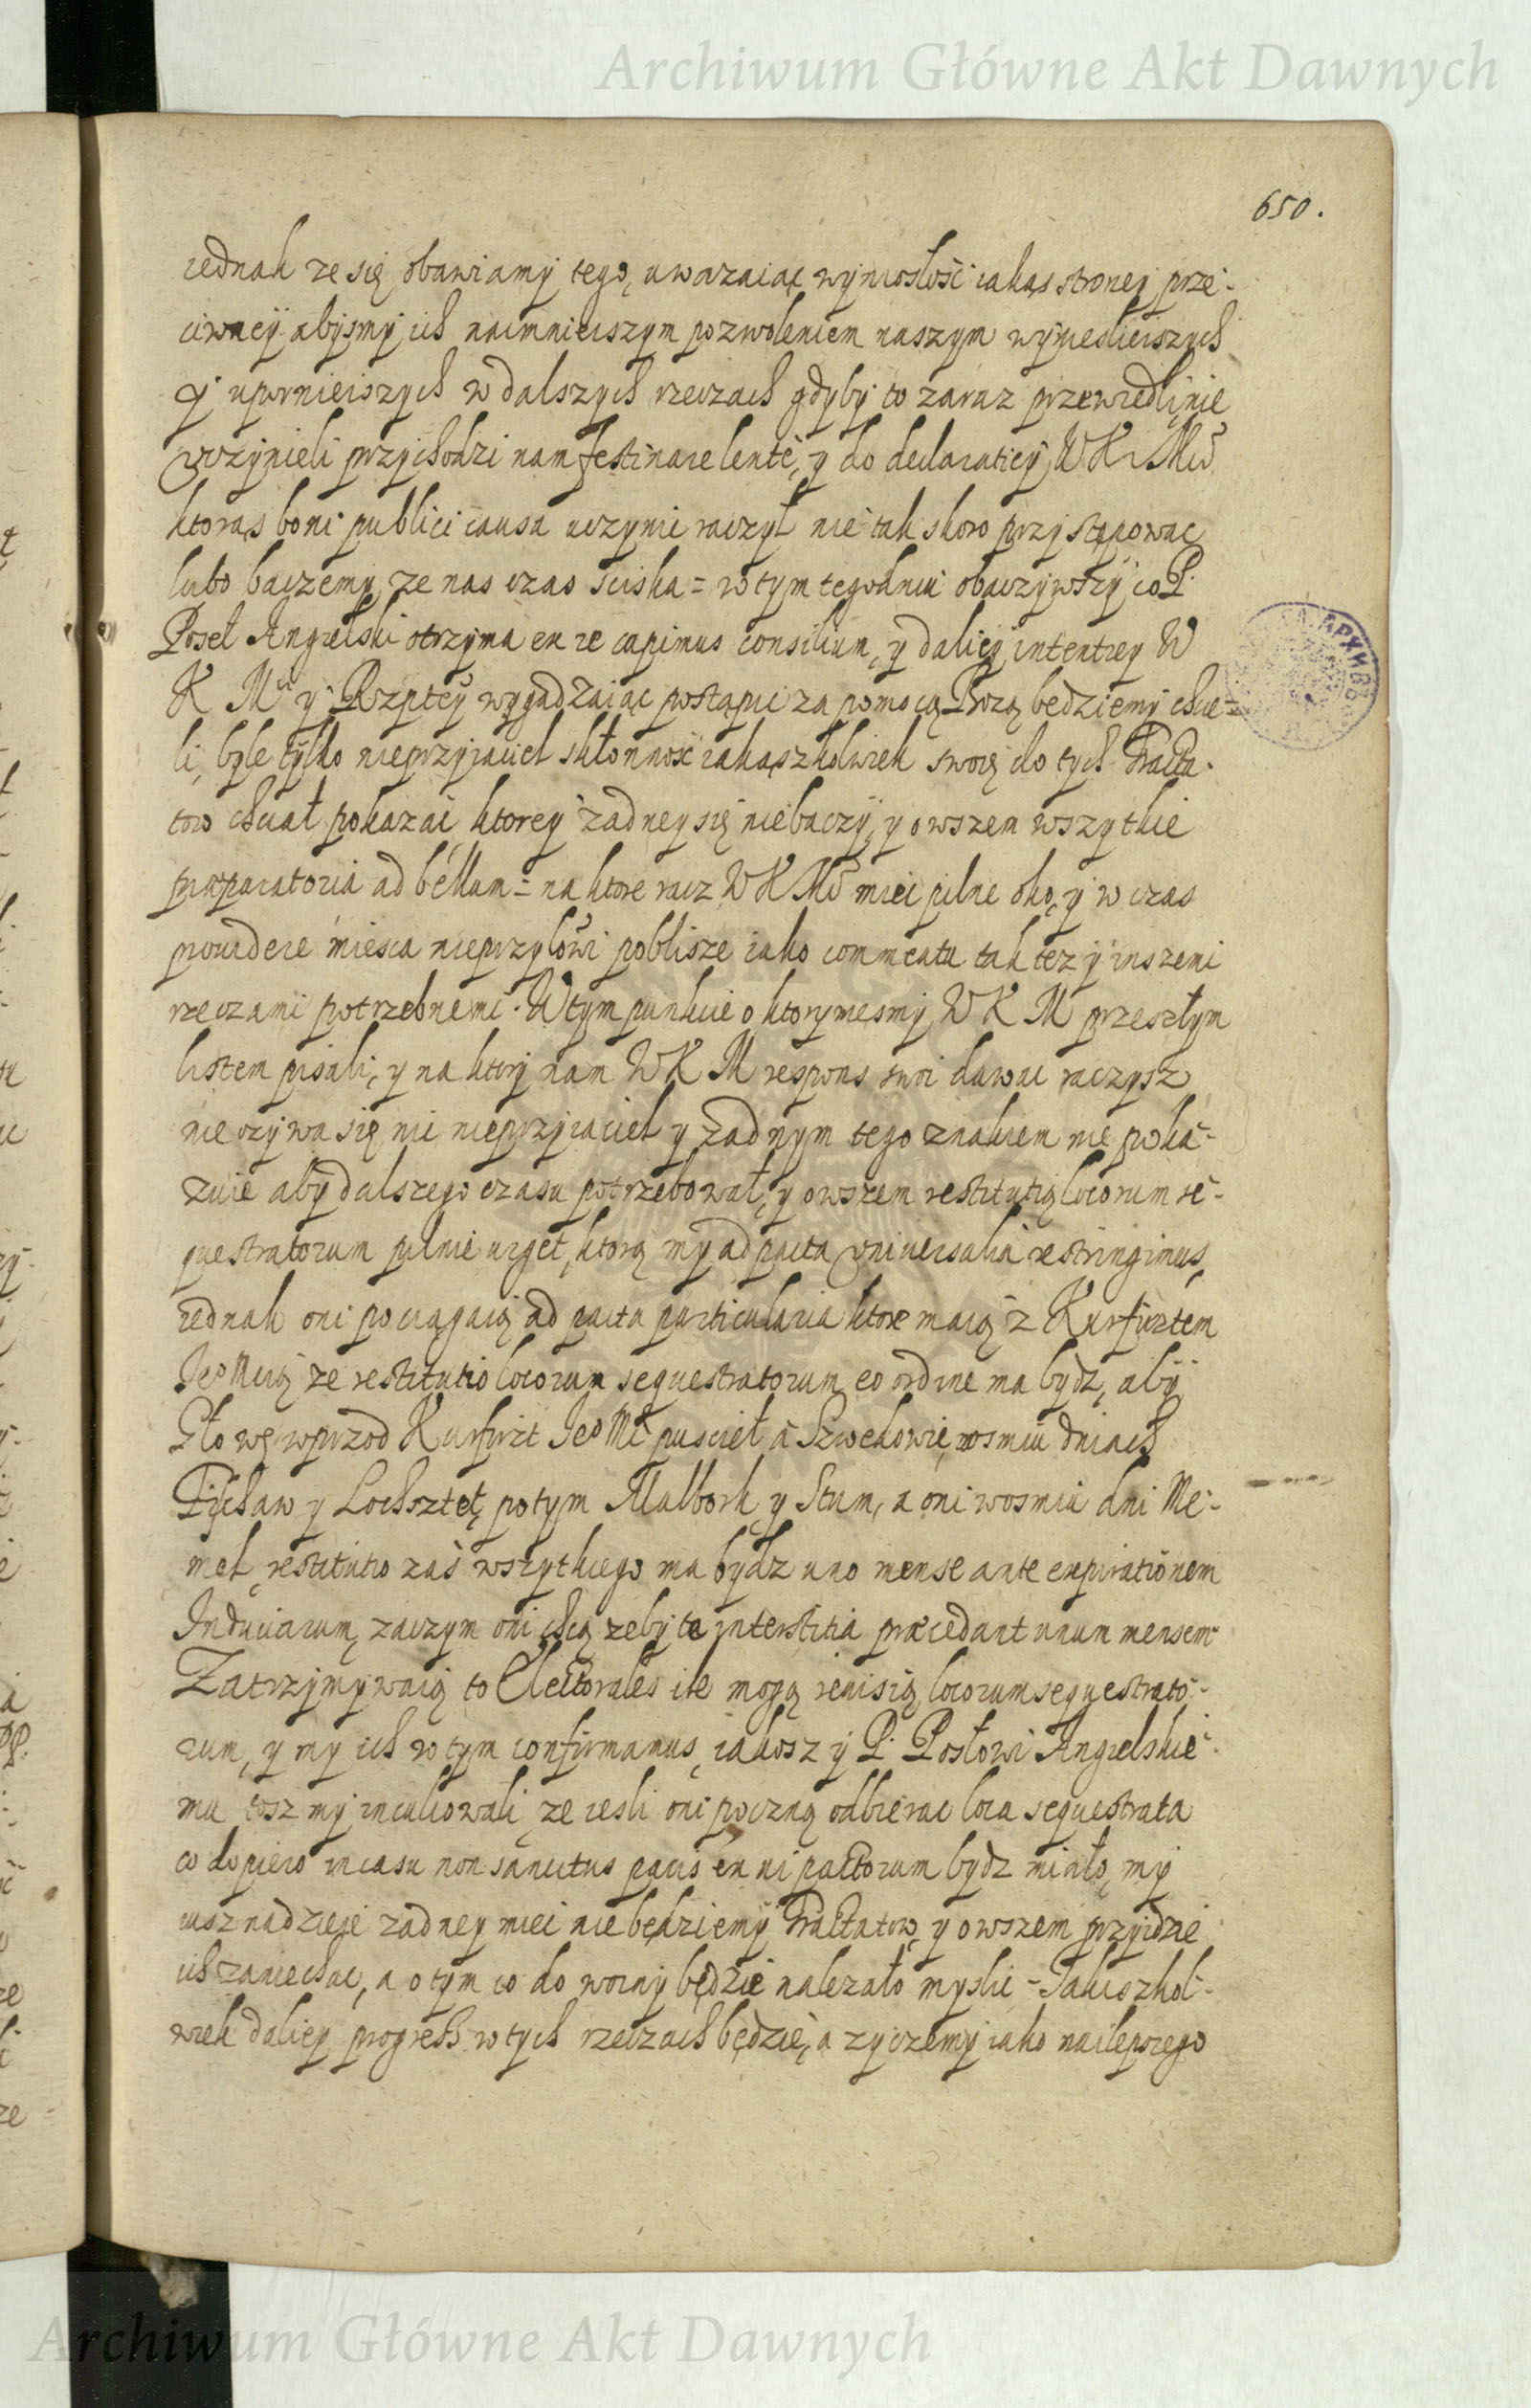 Archiwum Główne Akt Dawnych
650.
iednak ze się obawiamy tego, uwazaiąc wyniosłość iakąs strony prze-
ciwney abysmy ich naimnieiszym pozwoleniem naszym wyniesleiszych
y upornieiszych w dalszych rzeczach gdyby to zaraz przewiedli nie
uczynieli przychodzi nam festinare lente, y do declaratiey WKrMci
ktorąs boni publici causa uczynic raczył nie tak skoro przystępowac
lubo baczemy ze nas czas sciska = w tym tegodniu obaczywszy co P.
Poseł Angielski otrzyma ex re capimus consilium, y daliey intentiey W
K Mci y Rzptey wygadzaiąc postąpic za pomocą Bozą będziemy chcie=
li, byle tylko nieprzyiaciel skłonnosc iakąszkolwiek swoię do tych Tracta-
tow chciał pokazac ktorey zadney się niebaczy, y owszem wszytkie
præparatoria ad bellum = na ktore racz WKMć miec pilne oko, y w czas
prouidere miesca nieprzylowi poblisze iako commeatu tak tez y inszemi
rzeczami potrzebnemi. W tym punkcie o ktorymesmy WKM przeszłym
listem pisali, y na ktory nam WKM respons swoi dawac raczysz,
nieozywa się nic nieprzyiaciel y zadnym tego znakiem nie poka-
zuie aby dalszego czasu potrzebował, y owszem restitutią locorum se-
questratorum pilnie urget, ktorą my ad pacta vniuersalia restringimus,
iednak oni pociągaią ad pacta particularia ktore maią z Kurfirztem
Jeo Mcią ze restitutio locorum sequestratorum eo ordine ma bydz, aby
Głowę wprzod Kurfirzt Jeo Mć puscieł a Szwedowie, w osmiu dniach
Pischaw y Lochsztet, potym Malbork y Stum, a oni w osmiu dni Me-
mel, restitutio zas wszytkiego ma bydz uno mense ante expirationem
Induciarum, zaczym oni chcą zeby te interstitia præcedant unum mensem
Zatrzymywaią to Electorales ile mogą remisią locorum sequestrato-
rum, y my ich w tym confirmamus, iakosz y P. Posłowi Angielskie-
mu tosz my inculcowali, ze iesli oni poczną odbierac loca sequestrata
co dopiero in casu non sancitus pacis ex ui pactorum bydz miało, my
iusz nadzieie zadney miec nie będziemy Tractatow, y owszem przyidzie
ich zaniechac, a o tym co do woiny będzie nalezało myslic - Jakoszkol-
wiek daliey progress w tych rzeczach będzie, a zyczemy iako nailepszego
Archiwum Główne Akt Dawnych